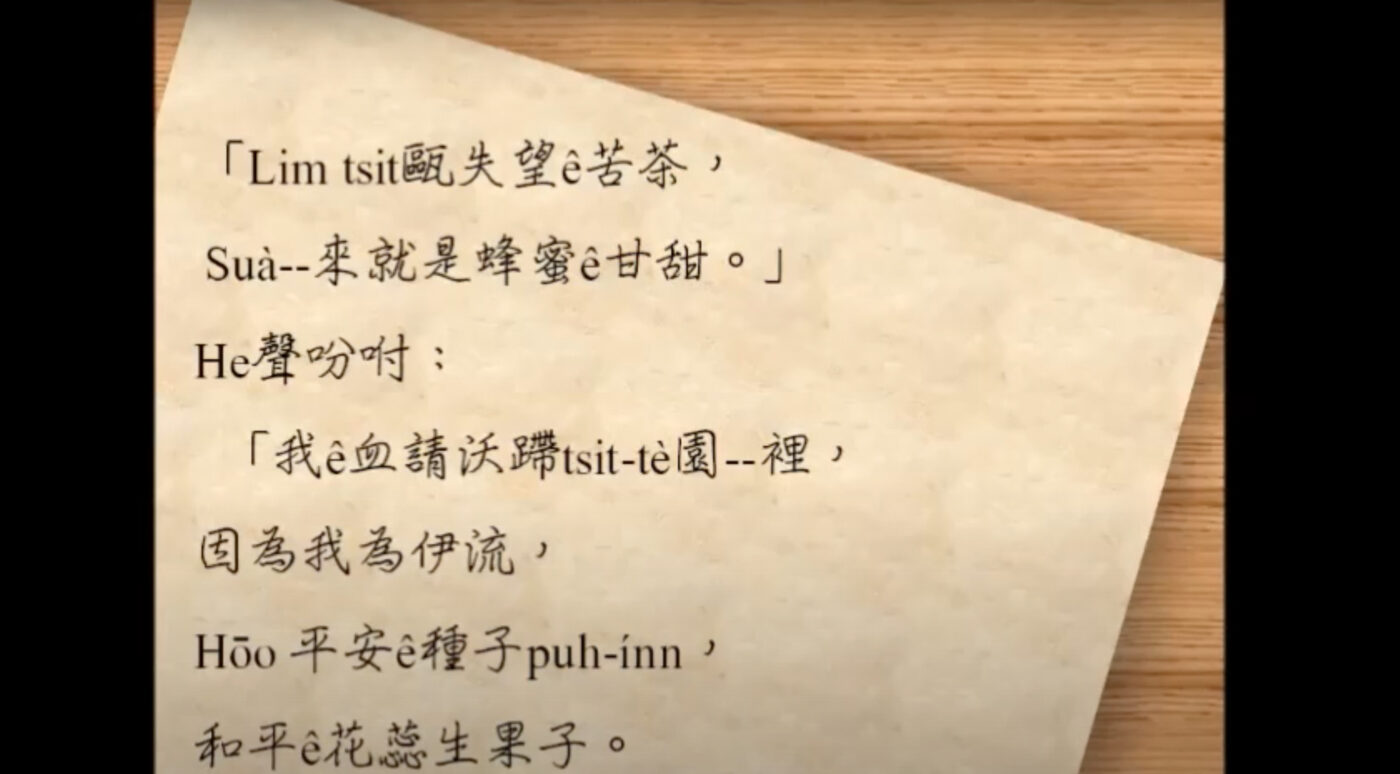 「Lim tsit甌失望ê苦茶，
Suà--來就是蜂蜜ê甘甜。」
He聲吩咐：
「我ê血請沃蹛tsit-tè園--裡，
因為我為伊流，
Hōo 平安ê種子puh-ínn，
和平ê花蕊生果子。